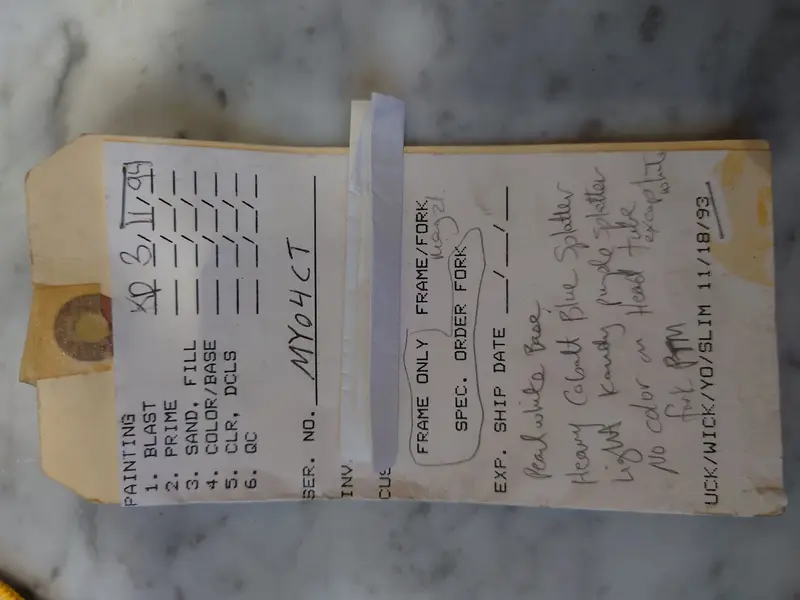 PAINTING
1. BLAST KD 3/11/94
2. PRIME __/__/__
3. SAND, FILL __/__/__
4. COLOR/BASE __/__/__
5. CLR, DCLS __/__/__
6. QC __/__/__
SER. NO. MY04CT
INV.
CUS
FRAME ONLY FRAME/FORK
SPEC. ORDER FORK
EXP. SHIP DATE __/__/__
Pearl white Base
Heavy Cobalt Blue Splatter
Light Kandy purple Splatter
No color on Head tube
fork except white
UCK/WICK/YO/SLIM 11/18/93